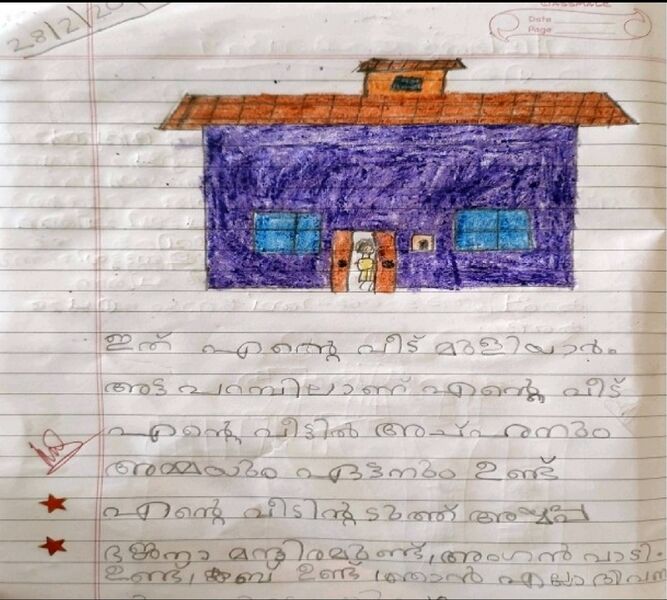 28/2/20
CLASSMATE
Date
Page
ഇത് എന്റെ വീട് മുളിയാർ.
അട്ട പറമ്പിലാണ് എന്റെ വീട്
എന്റെ വീട്ടിൽ അച്ഛനും
അമ്മയും ഏട്ടനും ഉണ്ട്
എന്റെ വീടിന്റടുത്ത് അയ്യപ്പ
ഭജനാ മന്ദിരമുണ്ട്, അംഗൻ വാടി.
ഉണ്ട്, ക്ലബ് ഉണ്ട് ഞാൻ എല്ലാ ദിവസ